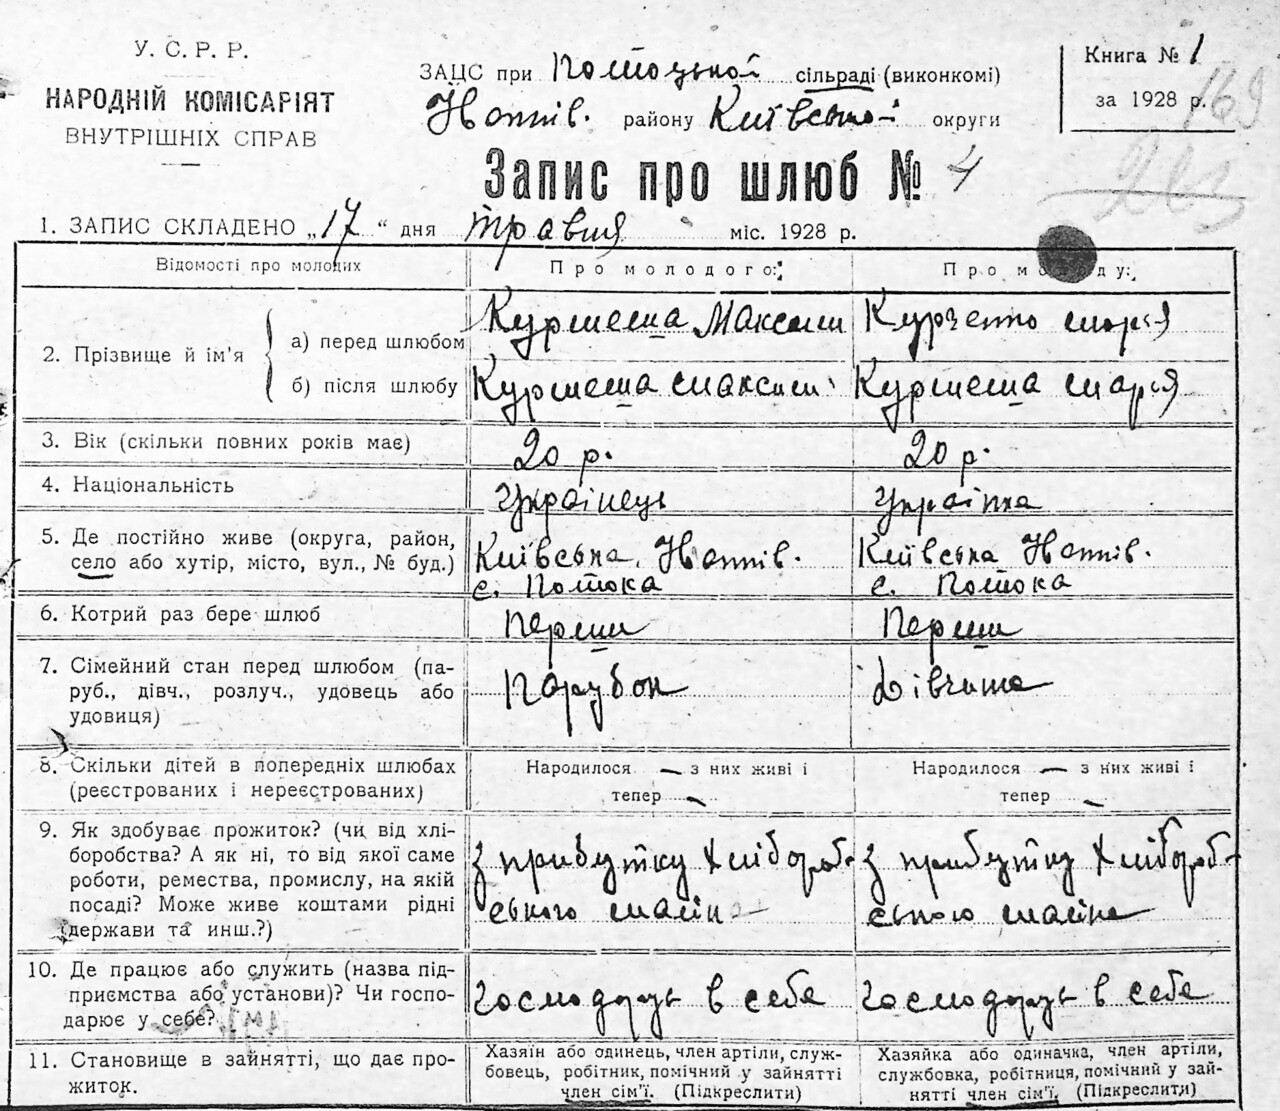 У. С. Р. Р.
НАРОДНІЙ КОМІСАРІЯТ
ВНУТРІШНІХ СПРАВ
ЗАЦС при Потоцькой сільраді (виконкомі)
району Київської округи
Книга № 1
за 1928 р.
169
Запис про шлюб № 4
1. ЗАПИС СКЛАДЕНО „17" дня травня міс. 1928 р.
Відомості про молодих
Про молодого:
Про молоду:
2. Прізвище й ім'я
а) перед шлюбом
Курмеша Максим
Курченко Марья
б) після шлюбу
Курмеша Максим
Курмеша Марья
3. Вік (скільки повних років має)
20 р.
20 р.
4. Національність
Українець
Українка
5. Де постійно живе (округа, район,
село або хутір, місто, вул., № буд.)
Київська,
с. Потока
Київська
с. Потока
6. Котрий раз бере шлюб
Перши
Перши
7. Сімейний стан перед шлюбом (па-
руб., дівч., розлуч., удовець або
удовиця)
Парубок
Дівчина
8. Скільки дітей в попередніх шлюбах
(реєстрованих і нереєстрованих)
Народилося — з них живі і
тепер —
Народилося — з них живі і
тепер —
9. Як здобуває прожиток? (чи від хлі-
боробства? А як ні, то від якої саме
роботи, ремества, промислу, на якій
посаді? Може живе коштами рідні
(держави та инш.?)
З прибутку Хліборob-
ського
З прибутку Хлібороб-
ського
10. Де працює або служить (назва під-
приємства або установи)? Чи госпо-
дарює у себе?
Господарує в себе
Господарує в себе
11. Становище в зайнятті, що дає про-
житок.
Хазяїн або одинець, член артіли, служ-
бовець, робітник, помічний у зайнятті
член сім'ї. (Підкреслити)
Хазяйка або одиначка, член артіли,
службовка, робітниця, помічний у зай-
нятті член сім'ї. (Підкреслити)